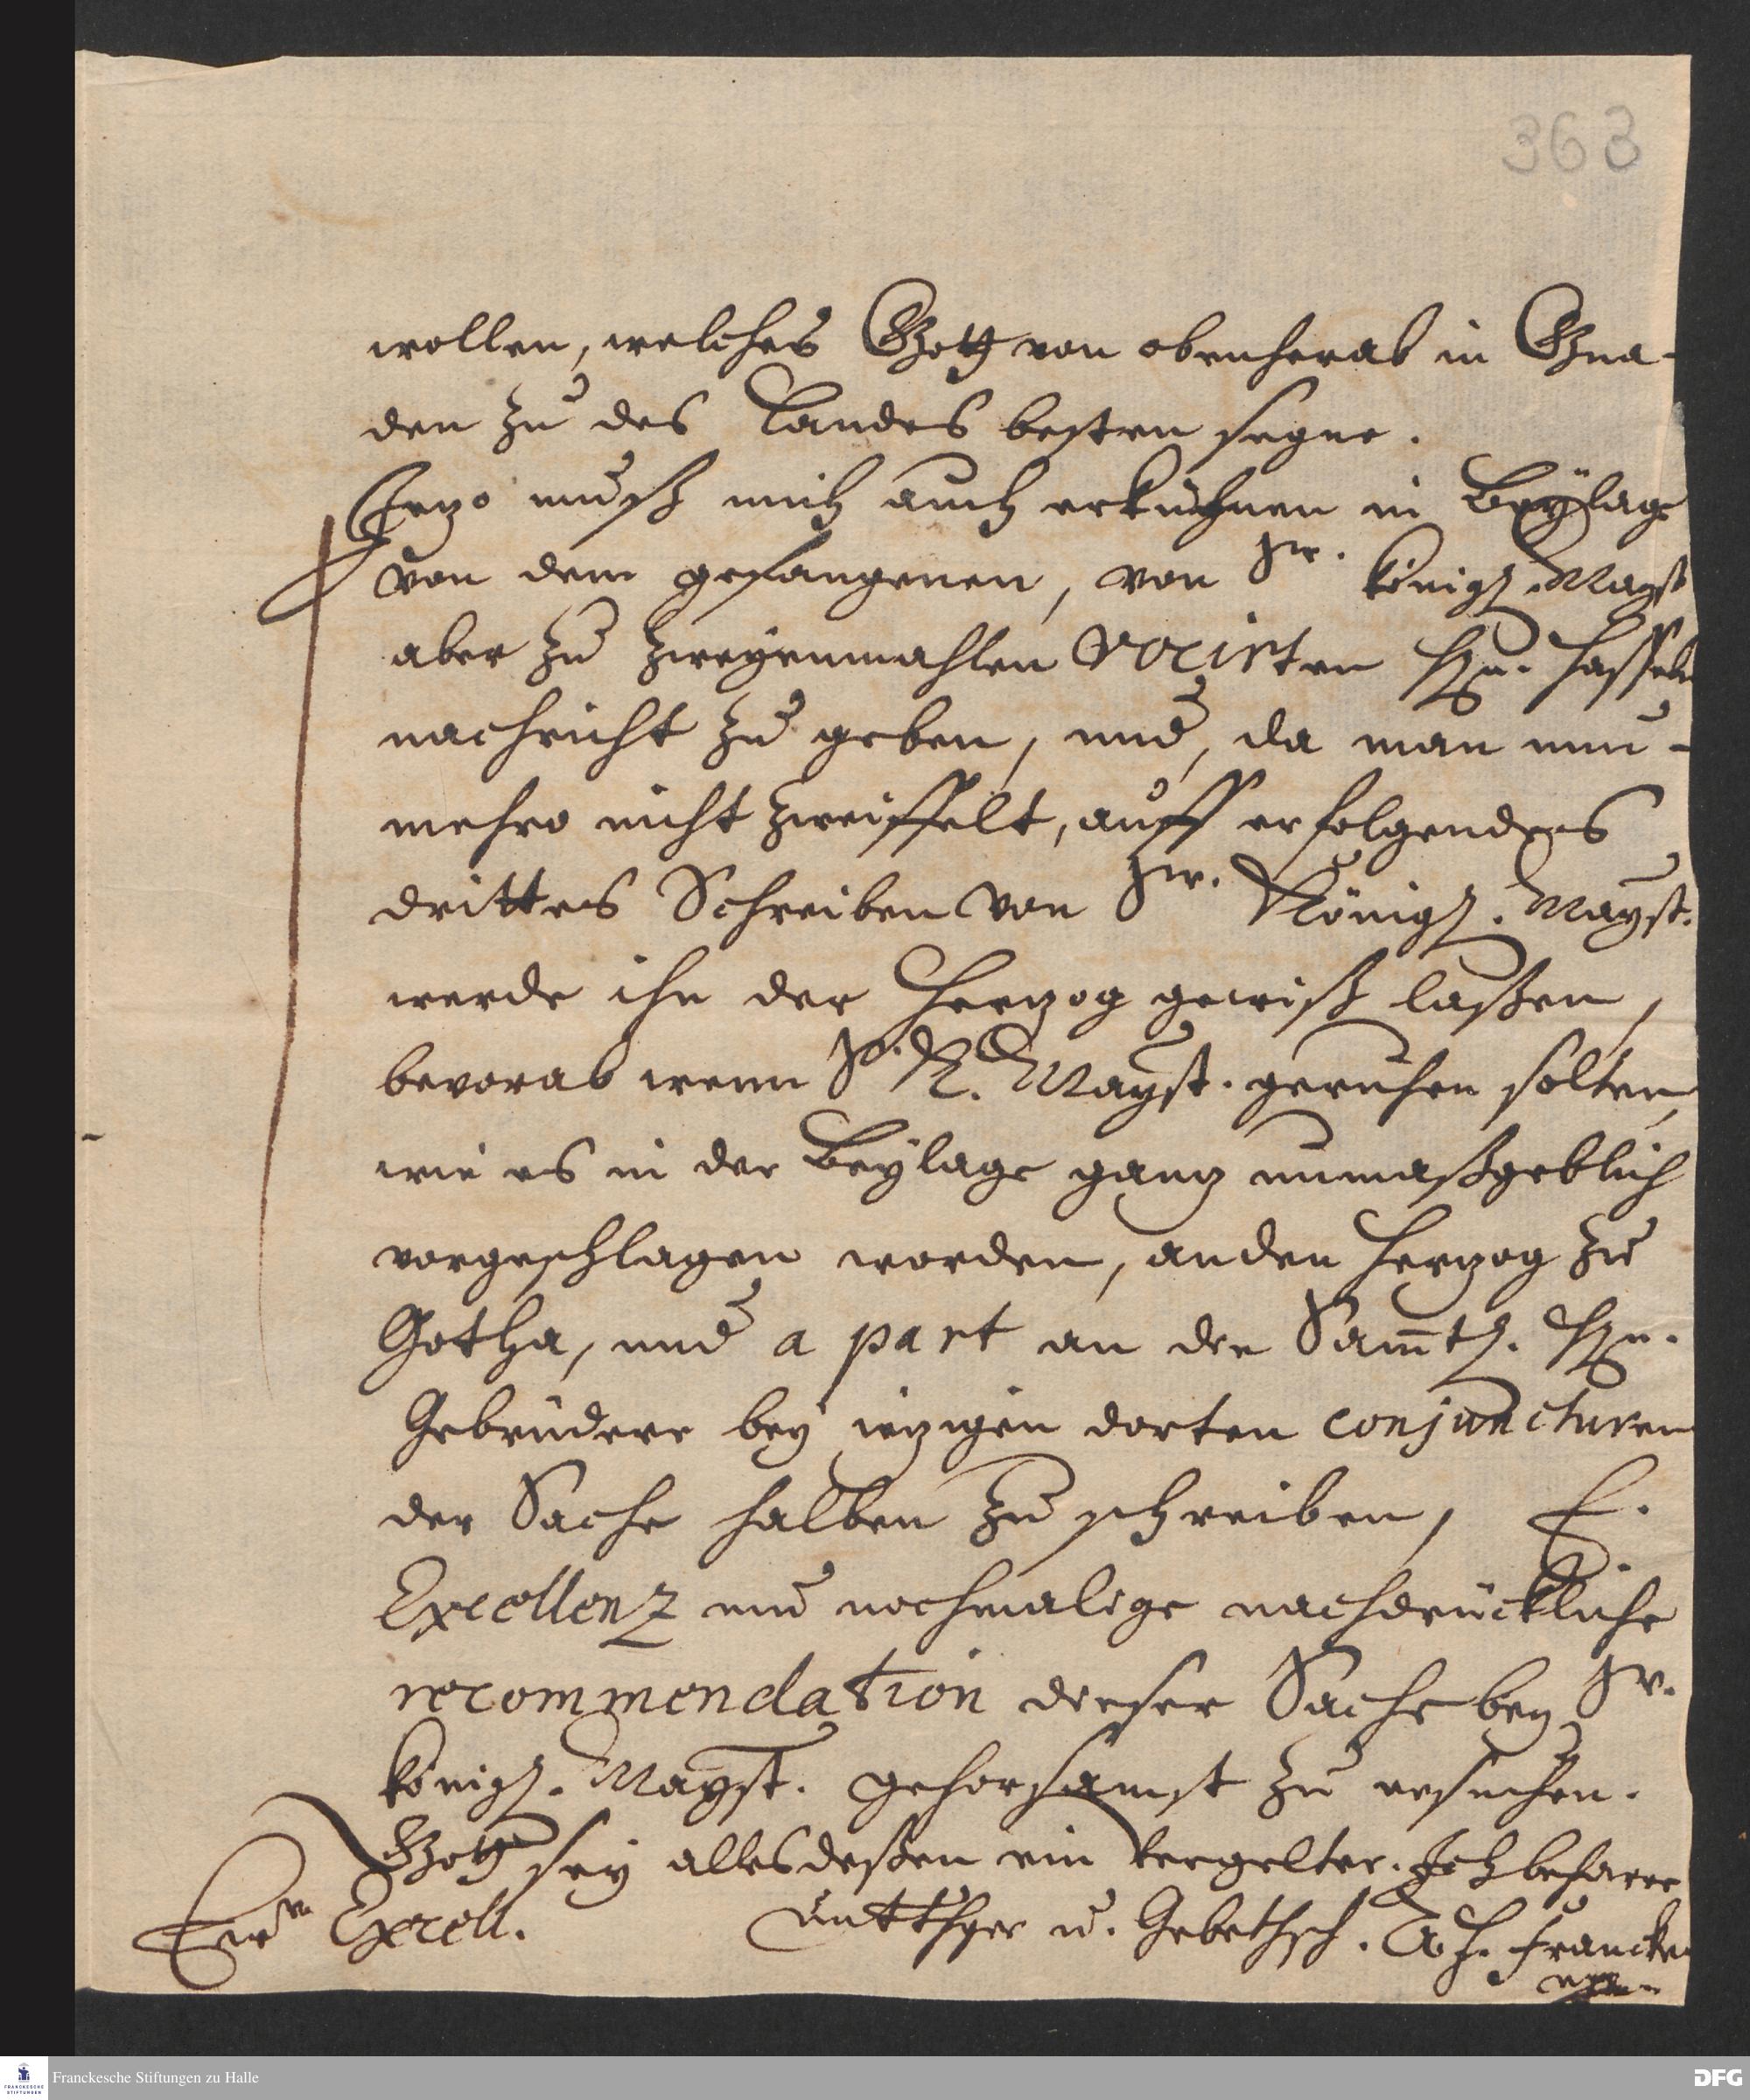 363
wollen, welches Gott von obenherab in Gna-
den zu des Landes besten segne.
Jetzo muß mich auch erkühnen in Beylage
von dem gefangenen, von Sr. Königl. Mayst
aber zu zweyenmahlen vocirten Hn. Hasseln
nachricht zu geben, und, da man nun-
mehro nicht zweiffelt, auff erfolgendes
drittes Schreiben von Sr. Königl. Mayst.
werde ihn der Hertzog gewiß laßen,
bevorab wenn S. K. Mayst. geruhen solten,
wie es in der Beylage gantz unmaßgeblich
vorgeschlagen worden, an den Hertzog zu
Gotha, und a part an die Sam̅tl. Hn.
Gebrüdere bey ietzigen dorten conjuncturen
der Sache halben zu schreiben, E.
Excellenz um nochmalige nachdrückliche
recommendation dieser Sache bey Sr.
Königl. Mayst. gehorsamst zu ersuchen.
Gott sey alles deßen ein Vergelter. Ich beharre
Ewr Excell. Untthger u. Gebethsch. A. H. Francke
Franckesche Stiftungen zu Halle
FRANCKESCHE STIFTUNGEN
DFG